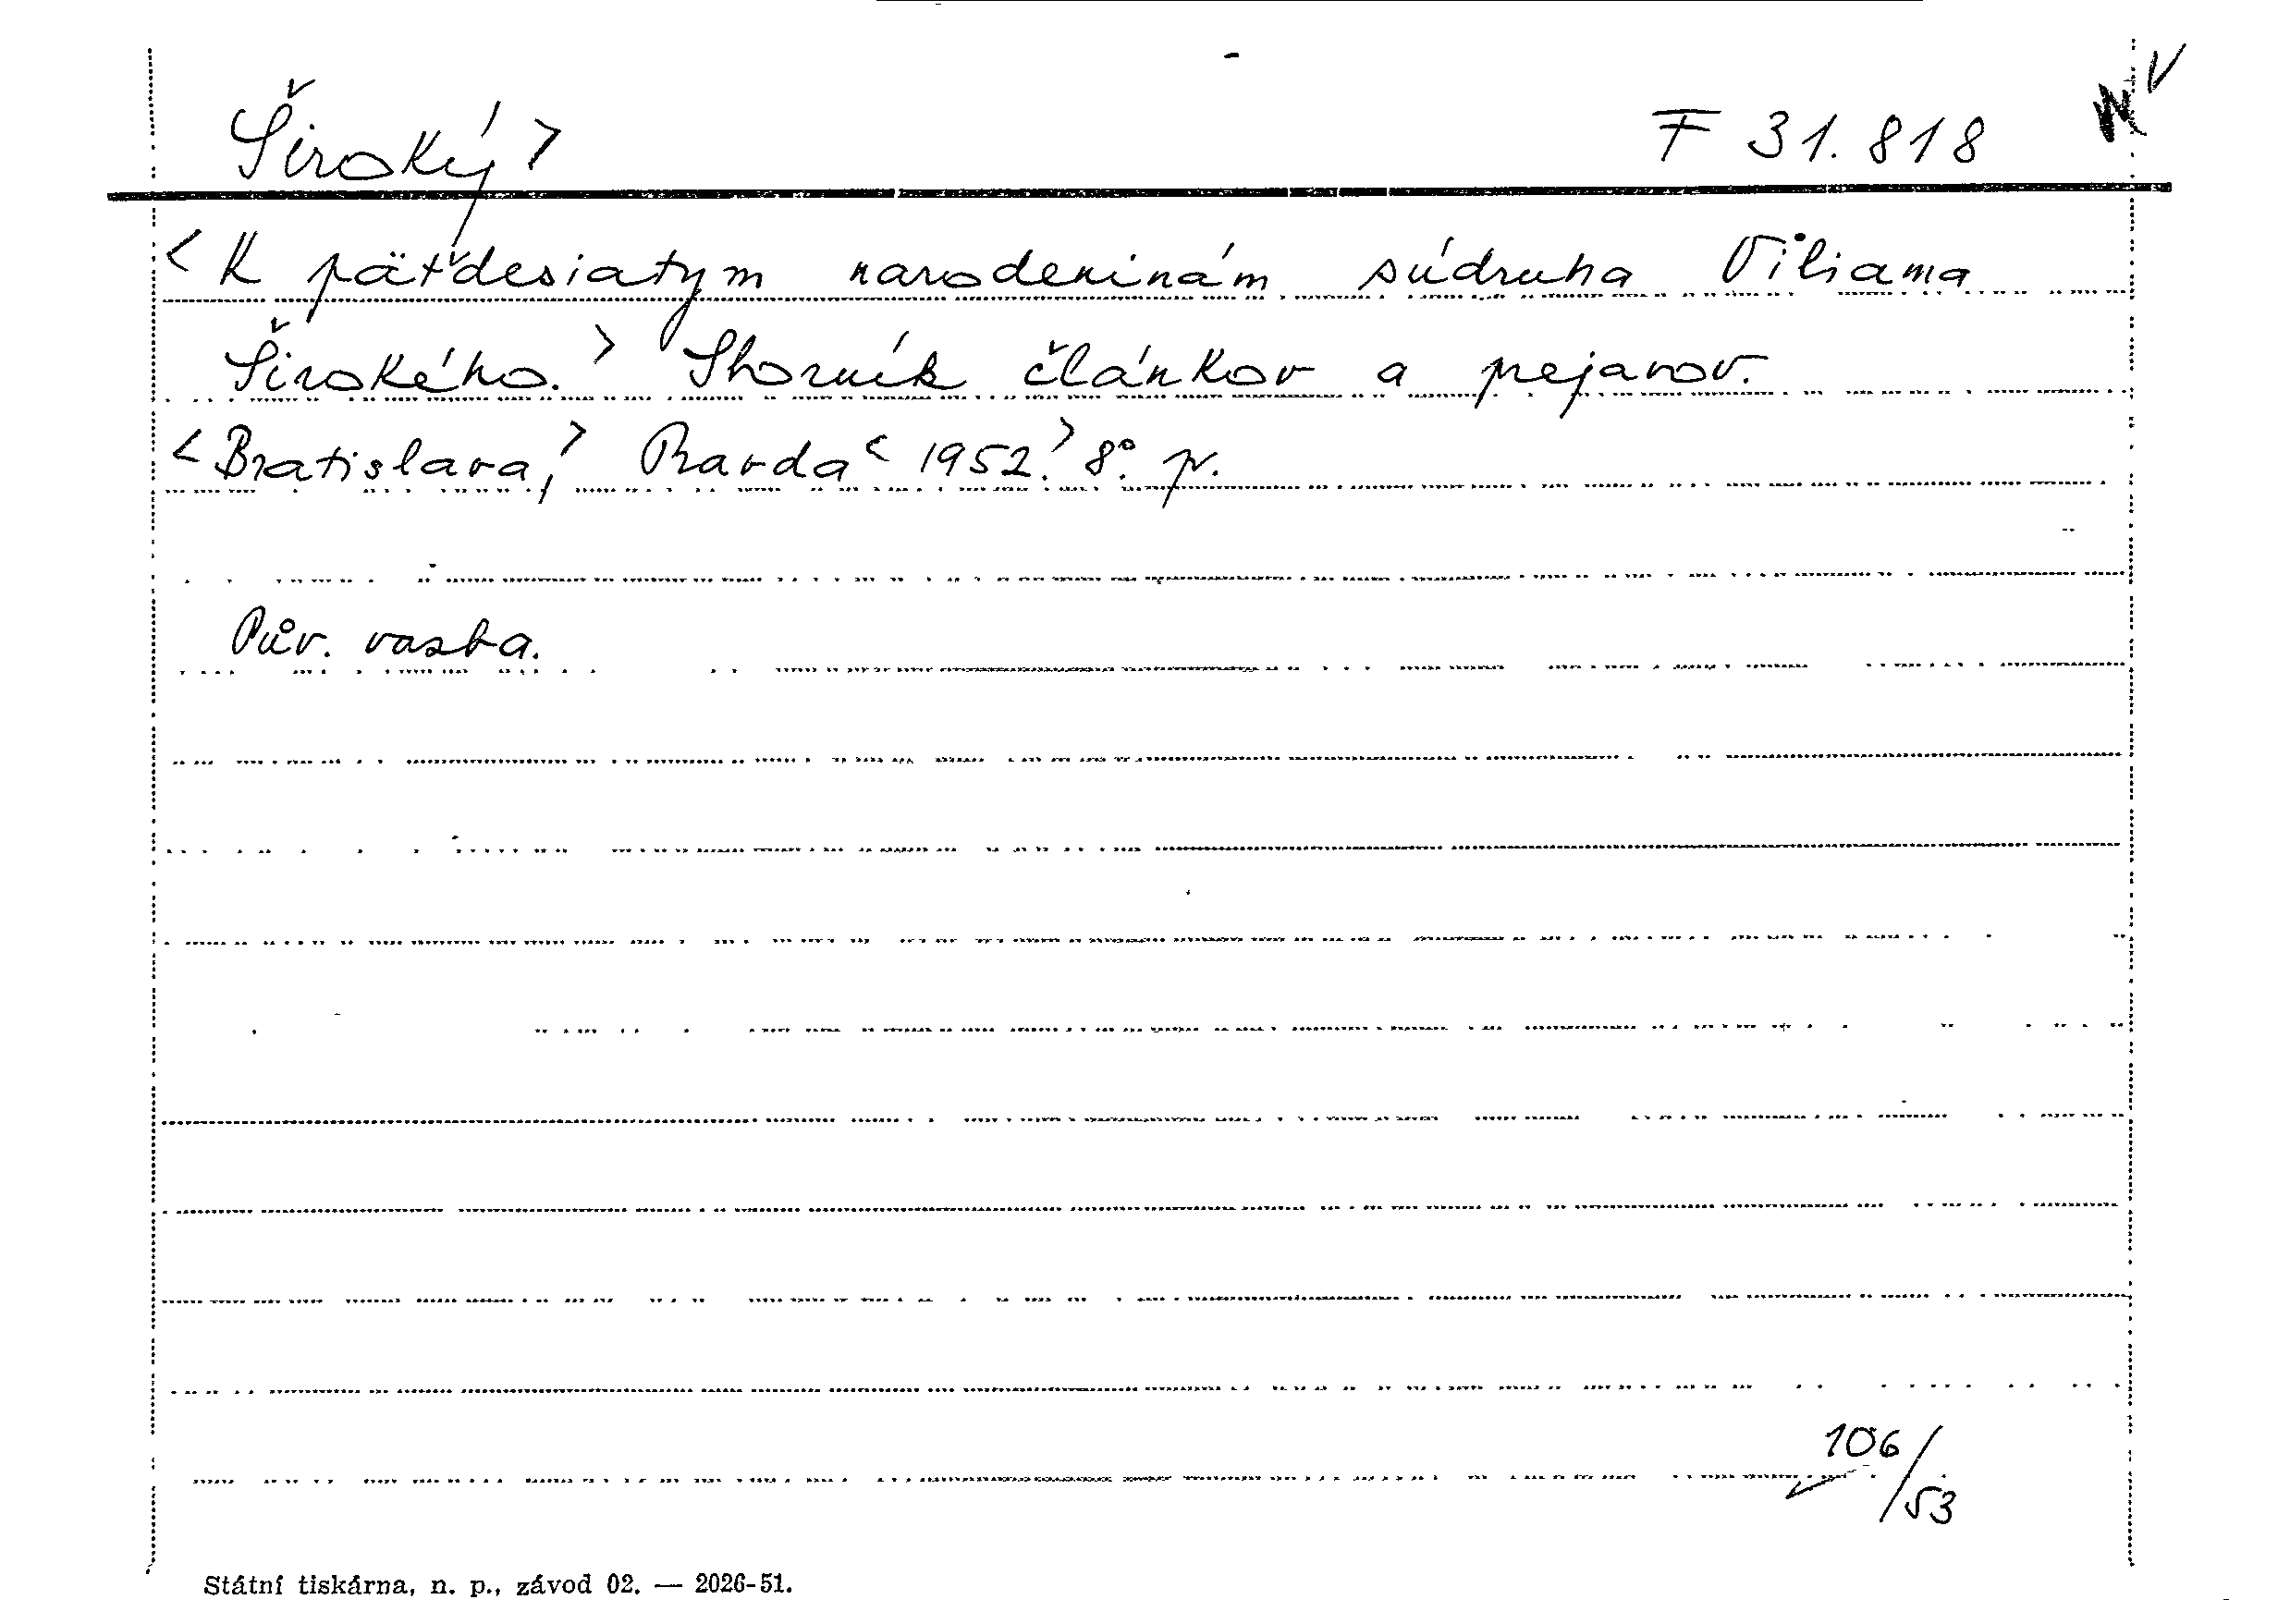 Široký> F 31.818
<K päťdesiatym narodeninám súdruha Viliama
Širokého.> Sborník článkov a prejavov.
<Bratislava,> Pravda <1952.> 8°. pv.
Pův. vazba.
106/53
Státní tiskárna, n. p., závod 02. — 2026-51.